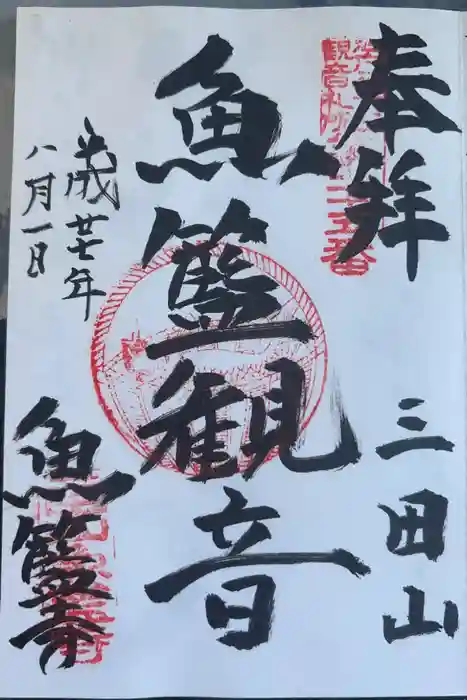 奉拝
三田山
魚籃観音
平成廿七年
八月一日
魚籃寺
観音札所
二十五番